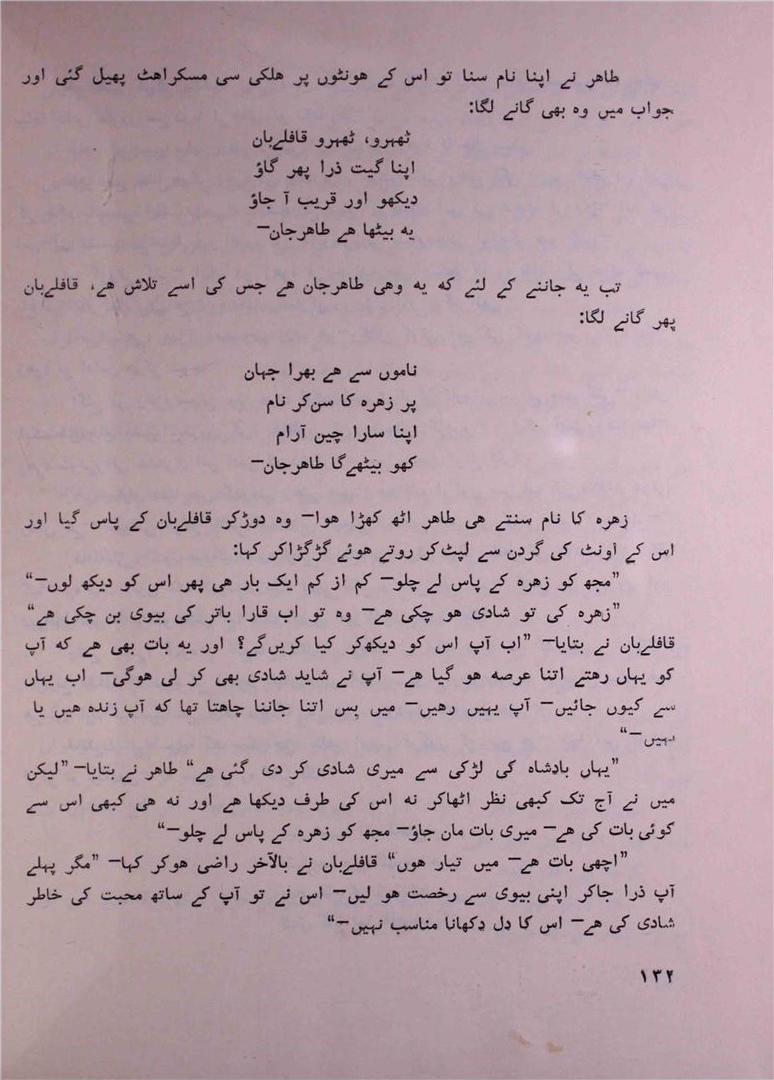 طاهر نے اپنا نام سنا تو اس کے هونٹوں پر هلکی سی مسکراهٹ پهیل گئی اور
جواب میں وه بهی گانے لگا:
ٹهہرو، ٹهہرو قافلےبان
اپنا گیت ذرا پهر گاؤ
دیکهو اور قریب آ جاؤ
یه بیٹها هے طاهرجان—
تب یه جاننے کے لئے که یه وهی طاهرجان هے جس کی اسے تلاش هے، قافلےبان
پهر گانے لگا:
ناموں سے هے بهرا جہان
پر زهره کا سن کر نام
اپنا سارا چین آرام
کهو بیٹهےگا طاهرجان—
زهره کا نام سنتے هی طاهر اٹه کهڑا هوا— وه دوڑکر قافلےبان کے پاس گیا اور
اس کے اونٹ کی گردن سے لپٹ کر روتے هوئے گڑگڑاکر کہا:
”مجه کو زهره کے پاس لے چلو— کم از کم ایک بار هی پهر اس کو دیکه لوں—“
”زهره کی تو شادی هو چکی هے— وه تو اب قارا باتر کی بیوی بن چکی هے“
قافلےبان نے بتایا— ”اب آپ اس کو دیکه‌کر کیا کریں‌گے؟ اور یه بات بهی هے که آپ
کو یہاں رهتے اتنا عرصه هو گیا هے— آپ نے شاید شادی بهی کر لی هوگی— اب یہاں
سے کیوں جائیں— آپ یہیں رهیں— میں بس اتنا جاننا چاهتا تها که آپ زنده هیں یا
نہیں—“
”یہاں بادشاه کی لڑکی سے میری شادی کر دی گئی هے“ طاهر نے بتایا— ”لیکن
میں نے آج تک کبهی نظر اٹهاکر نه اس کی طرف دیکها هے اور نه هی کبهی اس سے
کوئی بات کی هے— میری بات مان جاؤ— مجه کو زهره کے پاس لے چلو—“
”اچهی بات هے— میں تیار هوں“ قافلےبان نے بالآخر راضی هوکر کہا— ”مگر پہلے
آپ ذرا جاکر اپنی بیوی سے رخصت هو لیں— اس نے تو آپ کے ساته محبت کی خاطر
شادی کی هے— اس کا دل دکهانا مناسب نہیں—“
۱۳۲